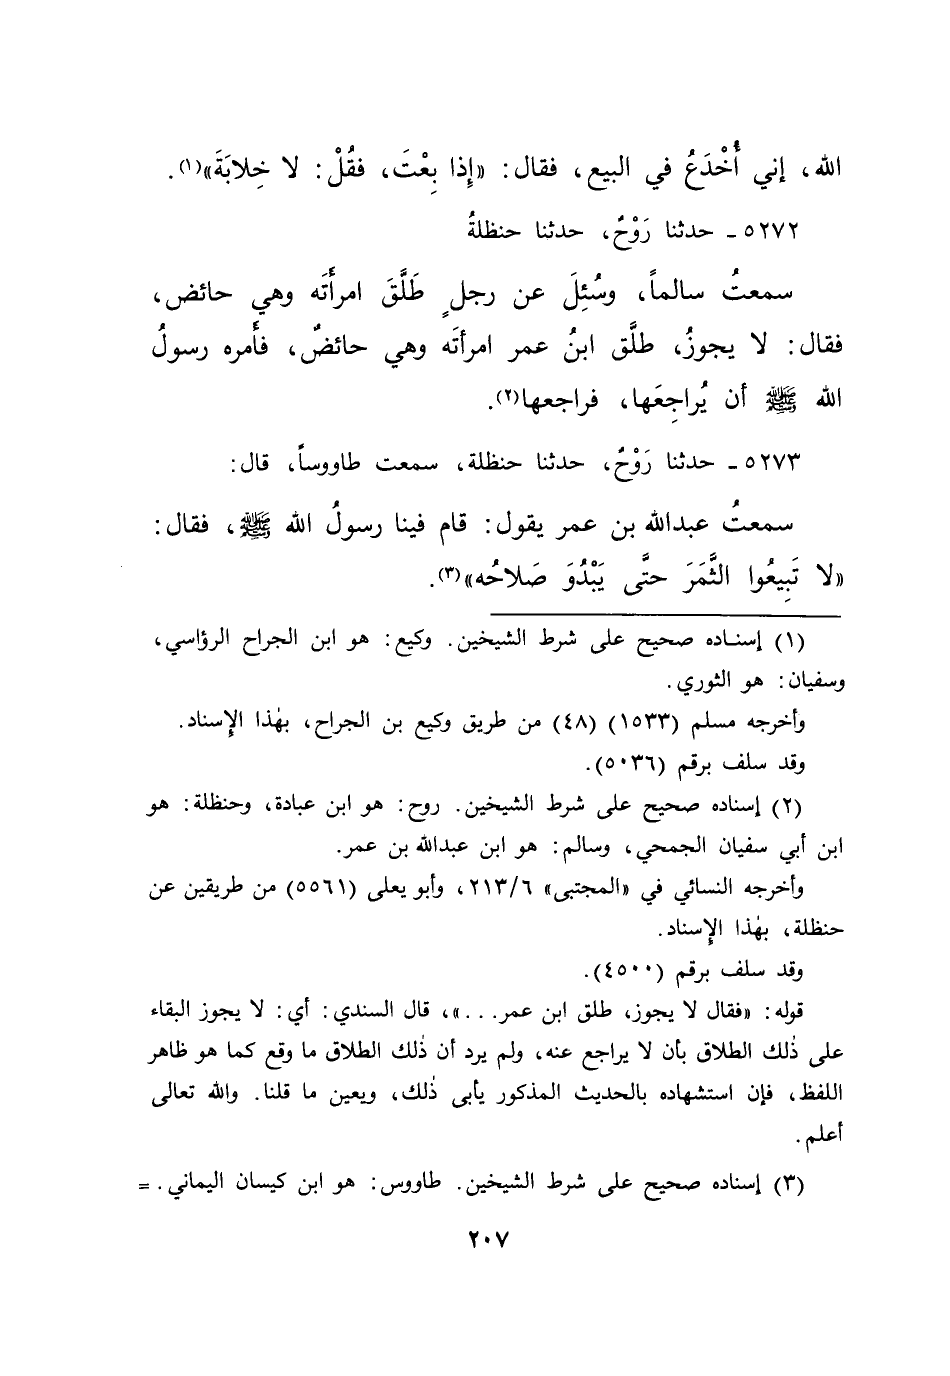 الله، إني أُخْدَعُ في البيع، فقال: «إِذا بِعْتَ، فقُلْ: لا خِلابَةَ»(١).
٥٢٧٢ ـ حدثنا رَوْحٌ، حدثنا حنظلةُ
سمعتُ سالماً، وسُئِلَ عن رجلٍ طَلَّقَ امرأَتَه وهي حائض،
فقال: لا يجوزُ، طلَّق ابنُ عمر امرأتَه وهي حائضٌ، فأَمره رسولُ
الله ﷺ أن يُراجِعَها، فراجعها(٢).
٥٢٧٣ ـ حدثنا رَوْحٌ، حدثنا حنظلة، سمعت طاووساً، قال:
سمعتُ عبدالله بن عمر يقول: قام فينا رسولُ الله ﷺ، فقال:
«لا تَبِيعُوا الثَّمَرَ حتَّى يَبْدُوَ صَلاحُه»(٣).
(١) إسناده صحيح على شرط الشيخين. وكيع: هو ابن الجراح الرؤاسي،
وسفيان: هو الثوري.
وأخرجه مسلم (١٥٣٣) (٤٨) من طريق وكيع بن الجراح، بهٰذا الإِسناد.
وقد سلف برقم (٥٠٣٦).
(٢) إسناده صحيح على شرط الشيخين. روح: هو ابن عبادة، وحنظلة: هو
ابن أبي سفيان الجمحي، وسالم: هو ابن عبدالله بن عمر.
وأخرجه النسائي في «المجتبى» ٢١٣/٦، وأبو يعلى (٥٥٦١) من طريقين عن
حنظلة، بهٰذا الإِسناد.
وقد سلف برقم (٤٥٠٠).
قوله: «فقال لا يجوز، طلق ابن عمر...»، قال السندي: أي: لا يجوز البقاء
على ذٰلك الطلاق بأن لا يراجع عنه، ولم يرد أن ذٰلك الطلاق ما وقع كما هو ظاهر
اللفظ، فإن استشهاده بالحديث المذكور يأبى ذٰلك، ويعين ما قلنا. والله تعالى
أعلم.
(٣) إسناده صحيح على شرط الشيخين. طاووس: هو ابن كيسان اليماني. =
٢٠٧